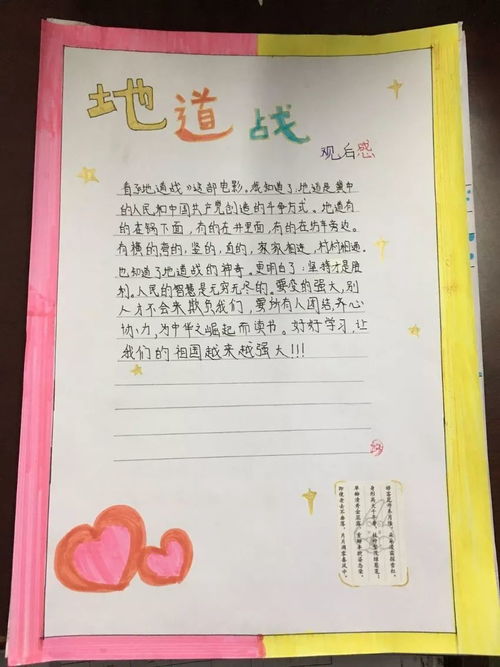 地道战
观后感
看了《地道战》这部电影。我知道了地道是冀中
的人民和中国共产党创造的斗争方式。地道有
的在锅下面，有的在井里面，有的在坑旁边。
有横的弯的，坚的，直的，家家相连，村村相通。
也知道了地道战的神奇。更明白了：坚持才是胜
利。人民的智慧是无穷无尽的。要变的强大，别
人才不会来欺负我们，要所有人团结，齐心
协力，为中华之崛起而读书。好好学习，让
我们的祖国越来越强大!!!